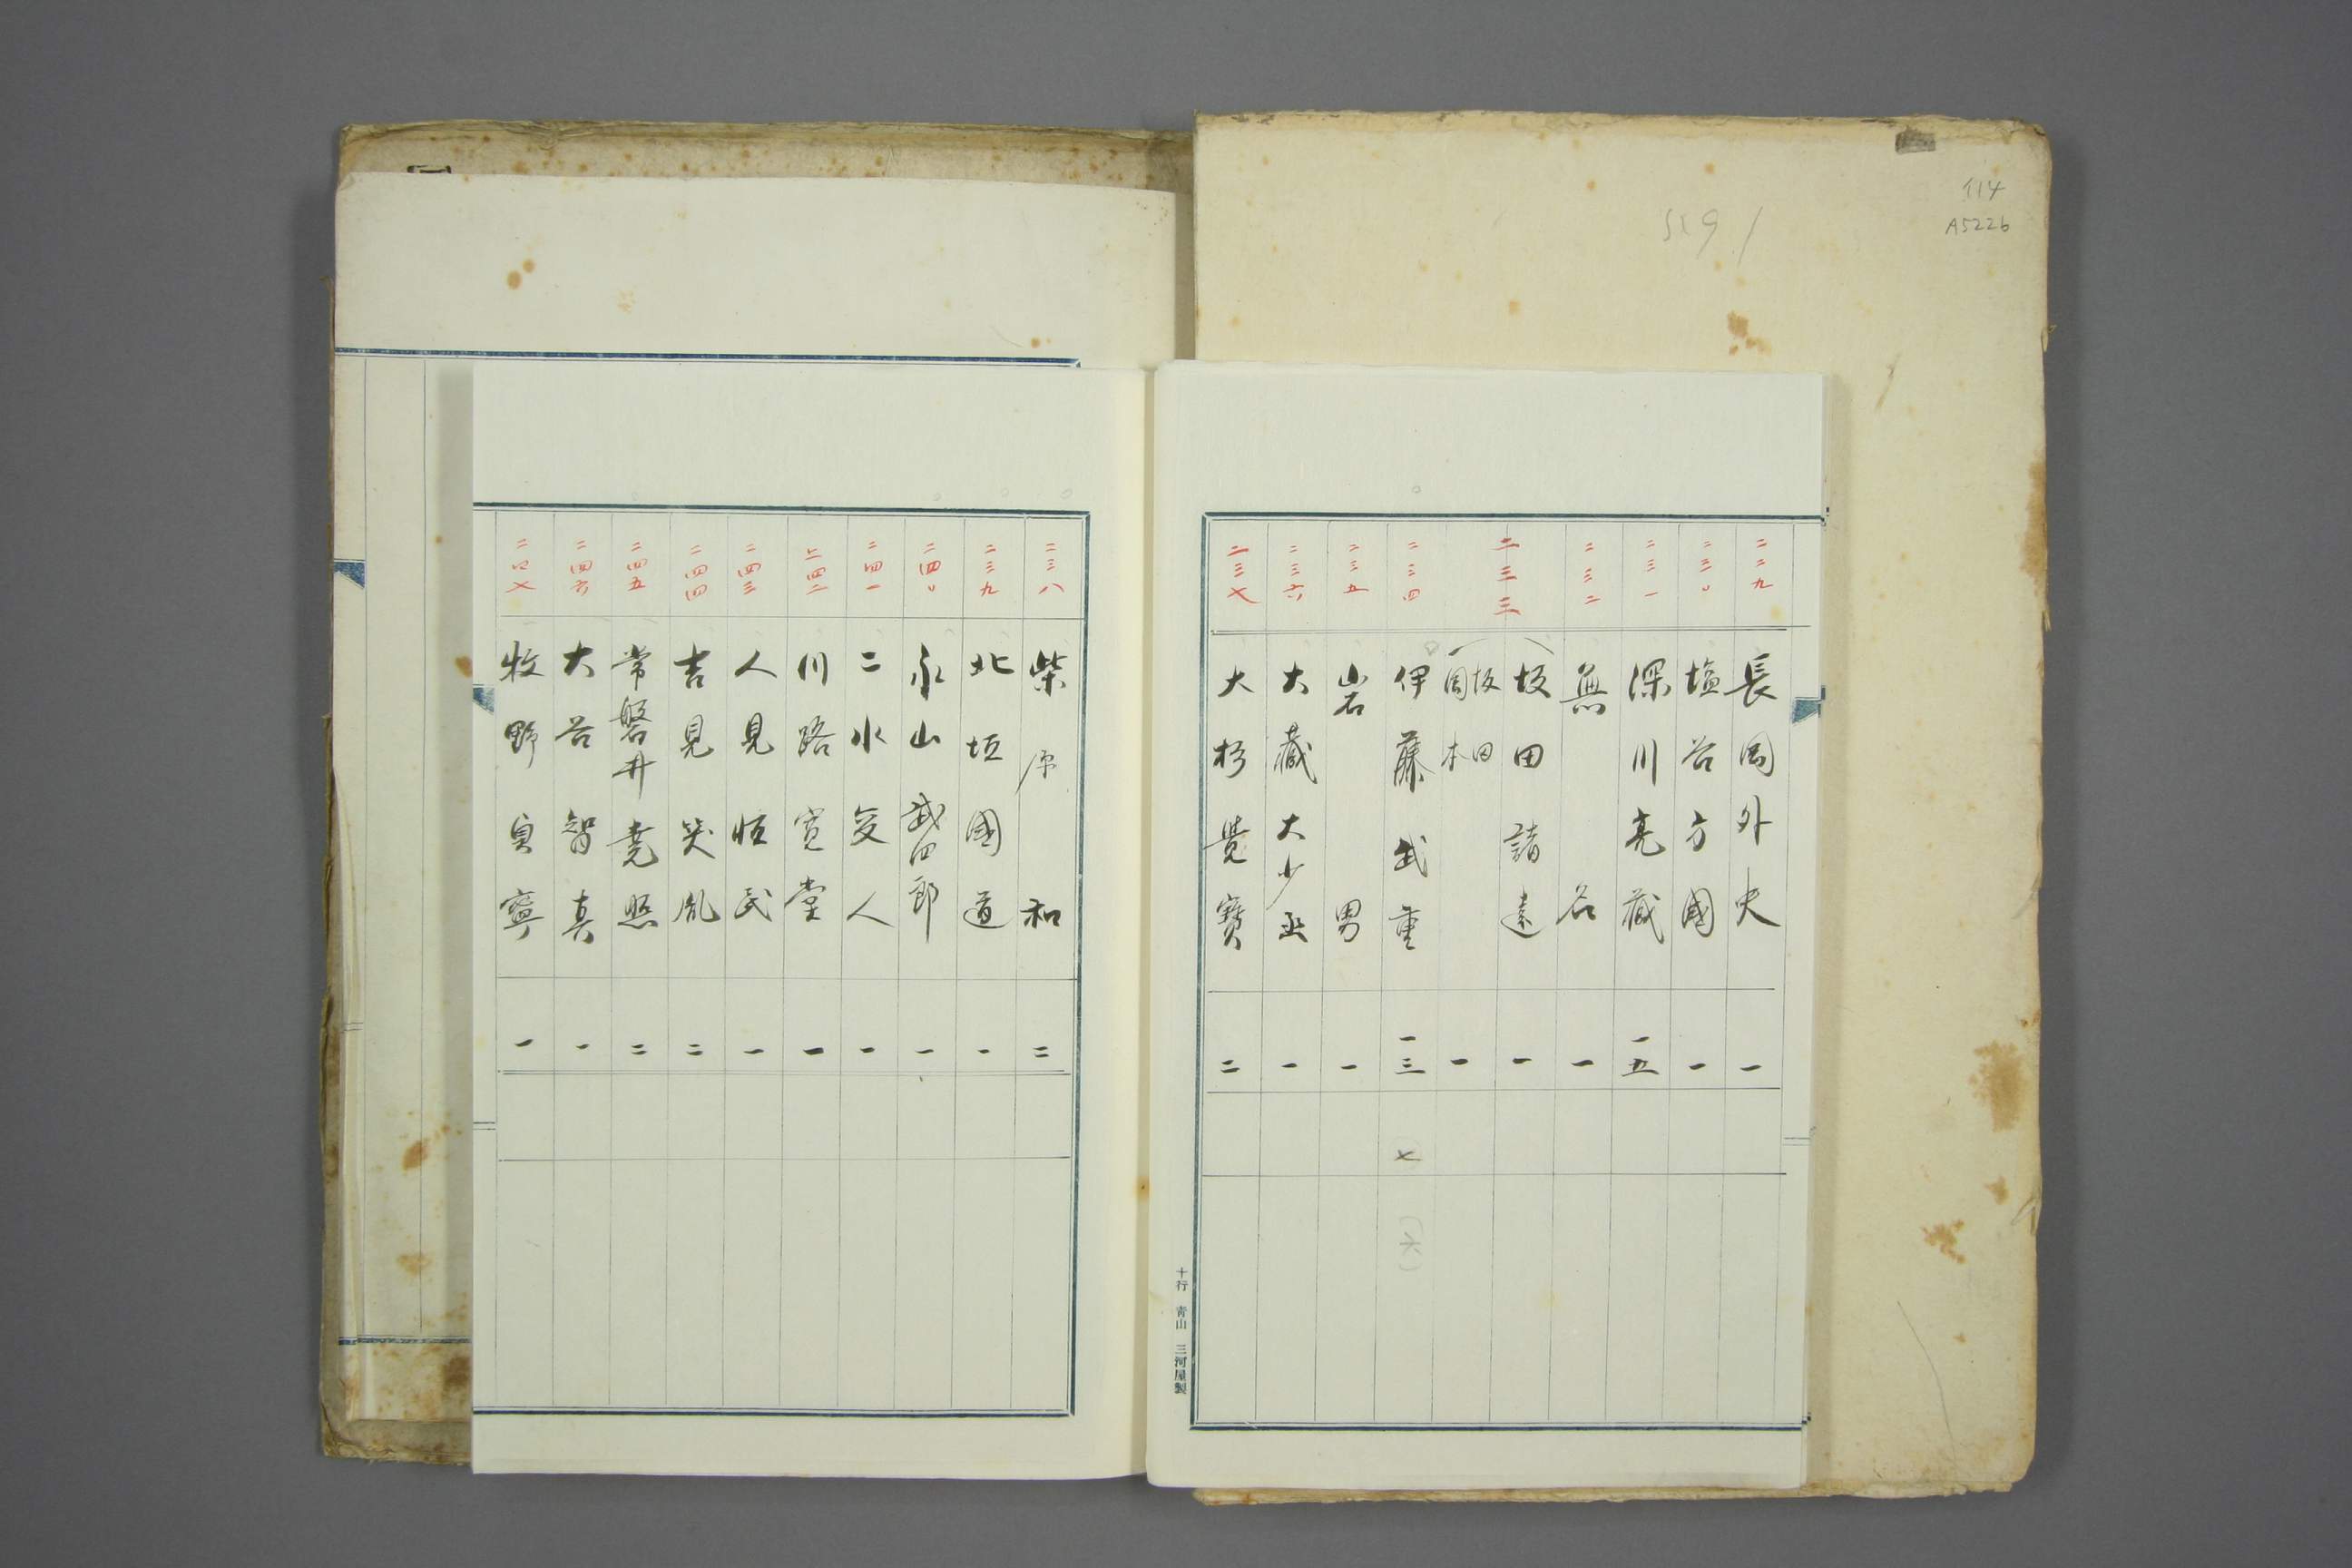 114
A5226
二二九 長岡外史 一
二三〇 塩谷方國 一
二三一 深川亮蔵 一五
二三二 無名 一
二三三 坂田諸遠 一
坂田
岡本 一
二三四 伊藤武重 一三 七 (六)
二三五 岩男 一
二三六 大蔵大少丞 一
二三七 大杉覺寶 二
十行 青山 三河屋製
二三八 柴原和 二
二三九 北垣國道 一
二四〇 永山武四郎 一
二四一 二水 人 一
二四二 川路寛堂 一
二四三 人見恒民 一
二四四 吉見 胤 二
二四五 常磐井堯熙 二
二四六 大谷智真 一
二四七 牧野貞寧 一